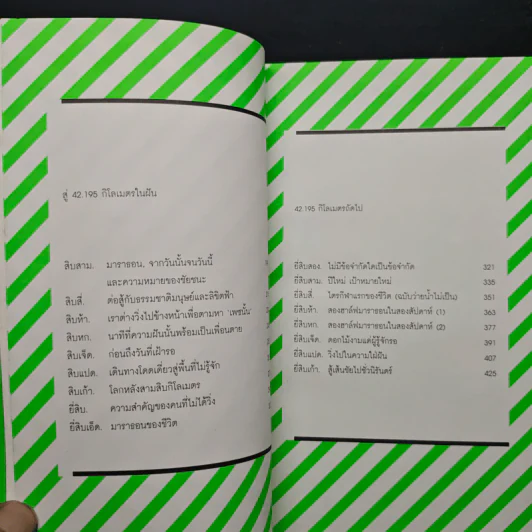 สู่ 42.195 กิโลเมตรในฝัน
สิบสาม. มาราธอน, จากวันนั้นจนวันนี้
และความหมายของชัยชนะ
สิบสี่. ต่อสู้กับธรรมชาติมนุษย์และลิขิตฟ้า
สิบห้า. เราต่างวิ่งไปข้างหน้าเพื่อตามหา 'เพซนั้น'
สิบหก. นาทีที่ความฝันนั้นพร้อมเป็นเพื่อนตาย
สิบเจ็ด. ก่อนถึงวันที่เฝ้ารอ
สิบแปด. เดินทางโดดเดี่ยวสู่พื้นที่ไม่รู้จัก
สิบเก้า. โลกหลังสามสิบกิโลเมตร
ยี่สิบ. ความสำคัญของคนที่ไม่ได้วิ่ง
ยี่สิบเอ็ด. มาราธอนของชีวิต
42.195 กิโลเมตรถัดไป
ยี่สิบสอง. ไม่มีข้อจำกัดใดเป็นข้อจำกัด 321
ยี่สิบสาม. ปีใหม่ เป้าหมายใหม่ 335
ยี่สิบสี่. ไตรกีฬาแรกของชีวิต (ฉบับว่ายน้ำไม่เป็น) 351
ยี่สิบห้า. สองฮาล์ฟมาราธอนในสองสัปดาห์ (1) 363
ยี่สิบหก. สองฮาล์ฟมาราธอนในสองสัปดาห์ (2) 377
ยี่สิบเจ็ด. ดอกไม้งามแด่ผู้รู้จักรอ 391
ยี่สิบแปด. วิ่งไปในความใฝ่ฝัน 407
ยี่สิบเก้า. สู่เส้นชัยไม่ชั่วนิรันดร์ 425